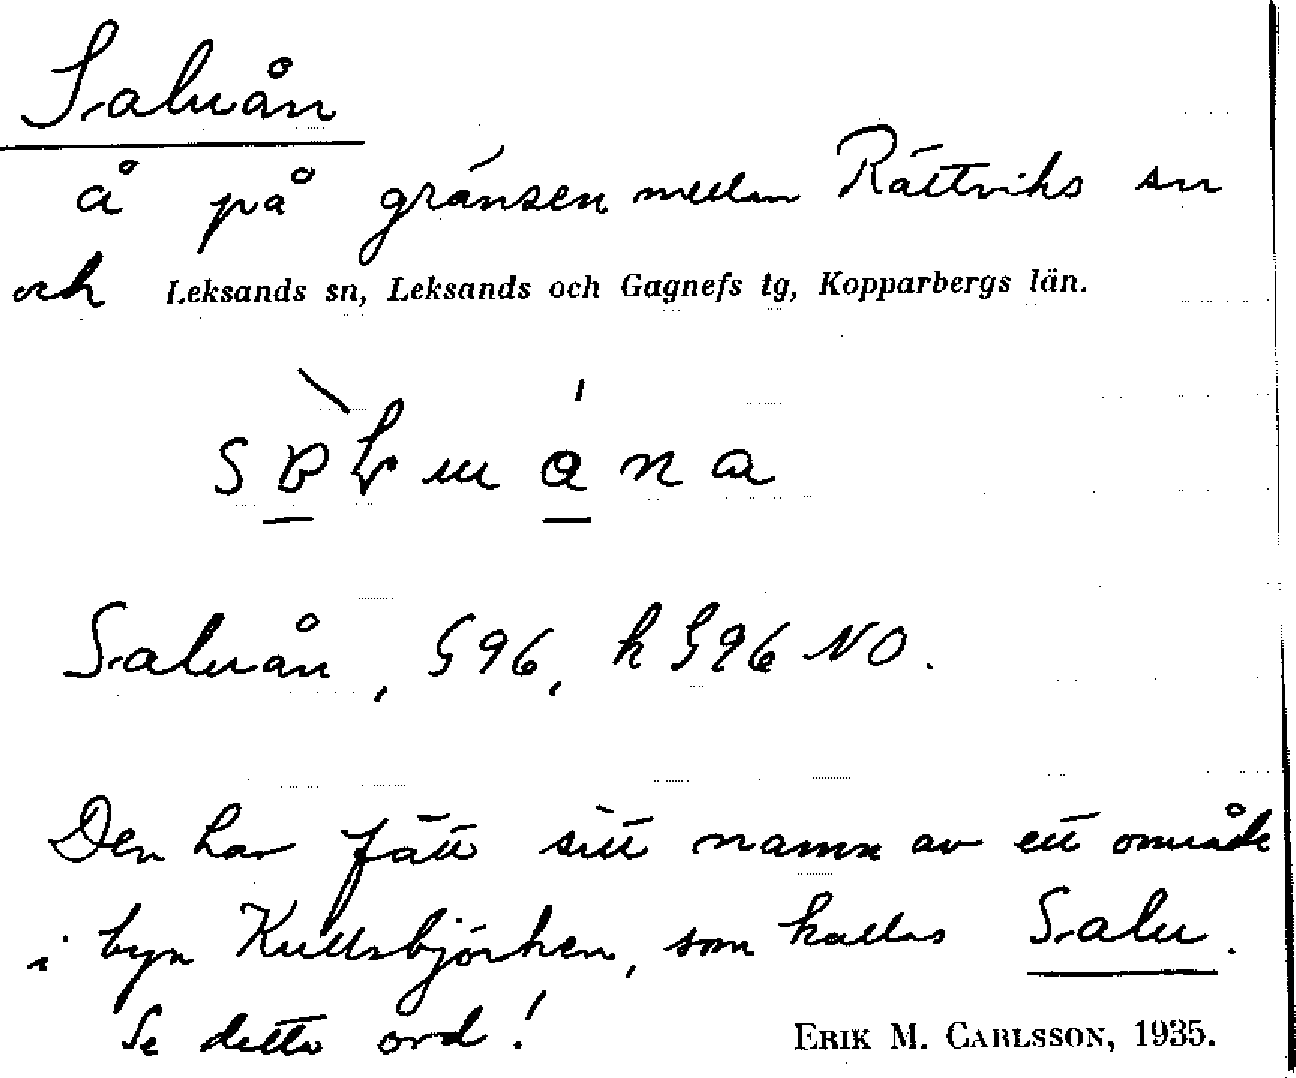 Saluån
å på gränsen mellan Rättviks sn
och Leksands sn, Leksands och Gagnefs tg, Kopparbergs län.
Saluån, G96, h G96 NO.
Den har fått sitt namn av ett område
i byn Kullsbjörken, som kallas Salu.
Se detta ord!
ERIK M. CARLSSON, 1935.